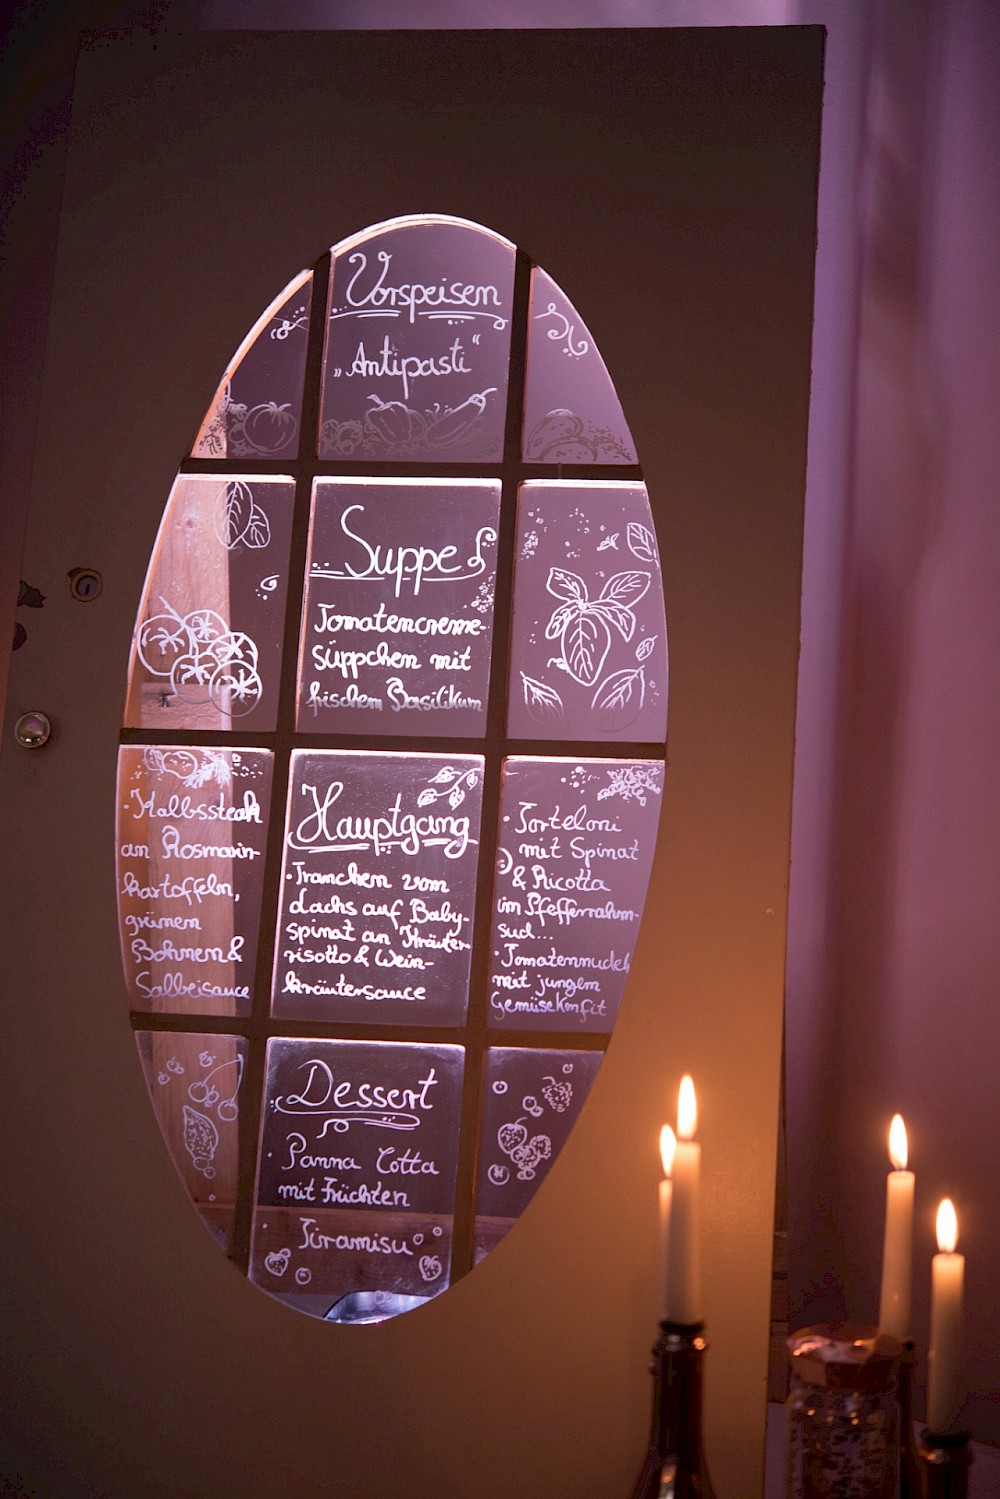 Vorspeisen
„Antipasti“
Suppe
Tomatencreme-
süppchen mit
frischem Basilikum
Hauptgang
· Kalbssteak
an Rosmarin-
kartoffeln,
grünen
Bohnen &
Salbeisauce
· Tranchen vom
Lachs auf Baby-
spinat an Kräuter-
risotto & Wein-
kräutersauce
· Torteloni
mit Spinat
& Ricotta
im Pfefferrahm-
sud...
· Tomatennudeln
mit jungem
Gemüsekonfit
Dessert
· Panna Cotta
mit Früchten
· Tiramisu